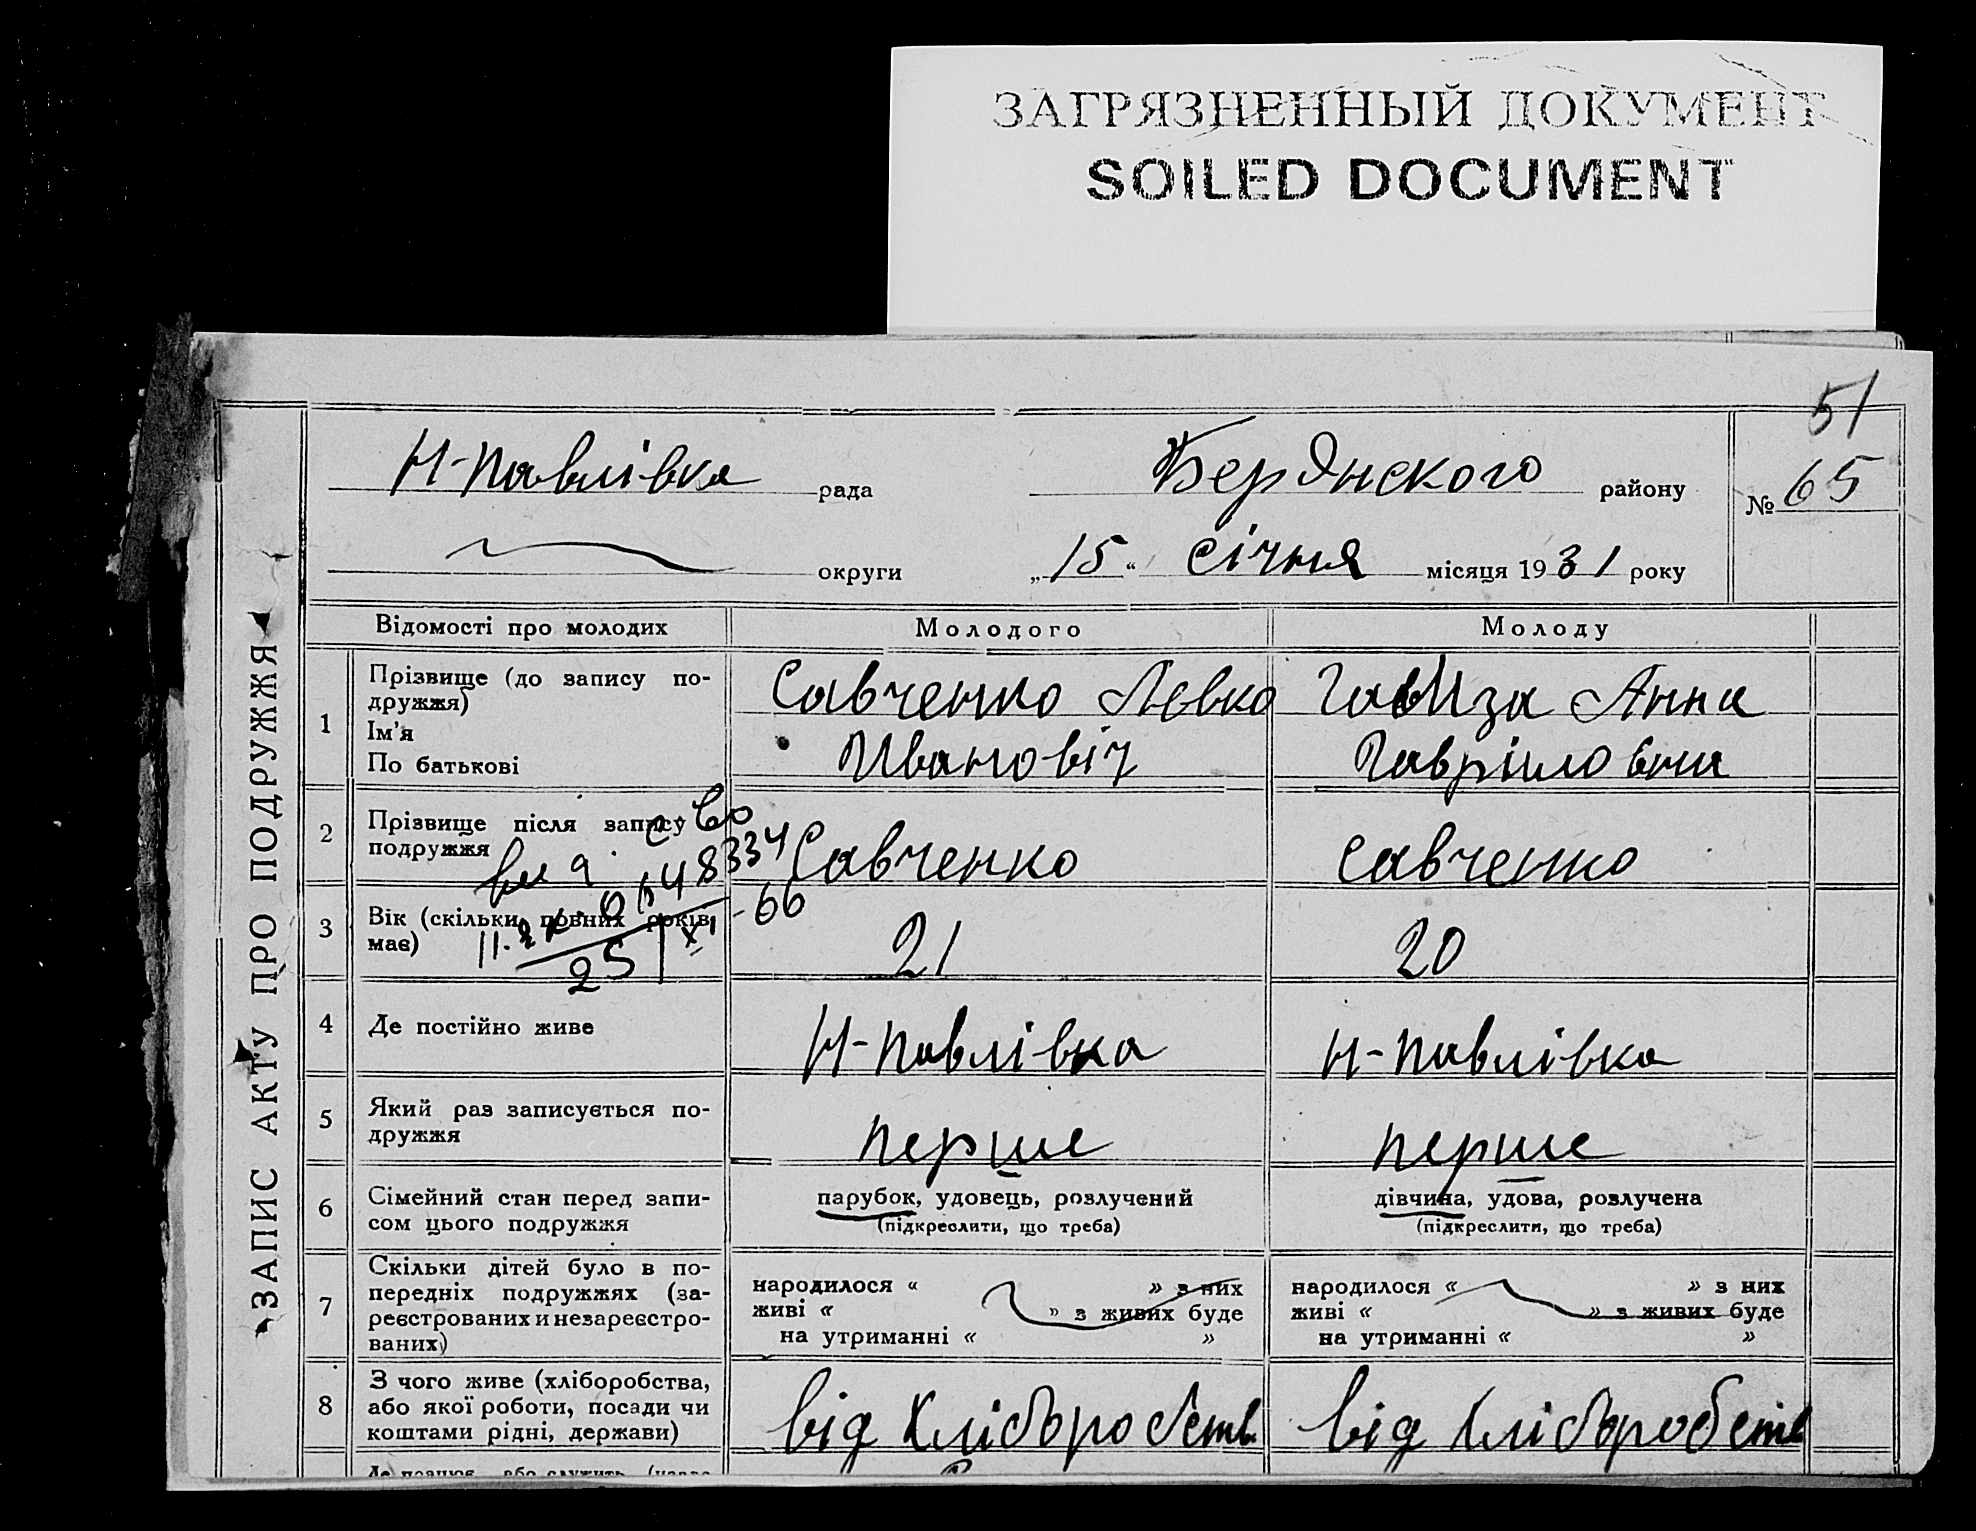 ЗАГРЯЗНЕННЫЙ ДОКУМЕНТ
SOILED DOCUMENT
51
Н-Павлівка рада
Бердянского району
№ 65
округи
„ 15 “ січня місяця 1931 року
ЗАПИС АКТУ ПРО ПОДРУЖЖЯ
Відомості про молодих
Молодого
Молоду
1
Прізвище (до запису по-
дружжя)
Ім'я
По батькові
Савченко Левко
Ивановіч
Анна
Гавріловна
2
Прізвище після запису
подружжя
Савченко
Савченко
3
Вік (скільки повних років
має)
25 XI -66
21
20
4
Де постійно живе
Н-Павлівка
Н-Павлівка
5
Який раз записується по-
дружжя
перше
перше
6
Сімейний стан перед запи-
сом цього подружжя
парубок, удовець, розлучений
(підкреслити, що треба)
дівчина, удова, розлучена
(підкреслити, що треба)
7
Скільки дітей було в по-
передніх подружжях (за-
реєстрованих и незареєстро-
ваних)
народилося « » з них
живі « » з живих буде
на утриманні « »
народилося « » з них
живі « » з живих буде
на утриманні « »
8
З чого живе (хліборобства,
або якої роботи, посади чи
коштами рідні, держави)
від хліборобств
від хліборобств